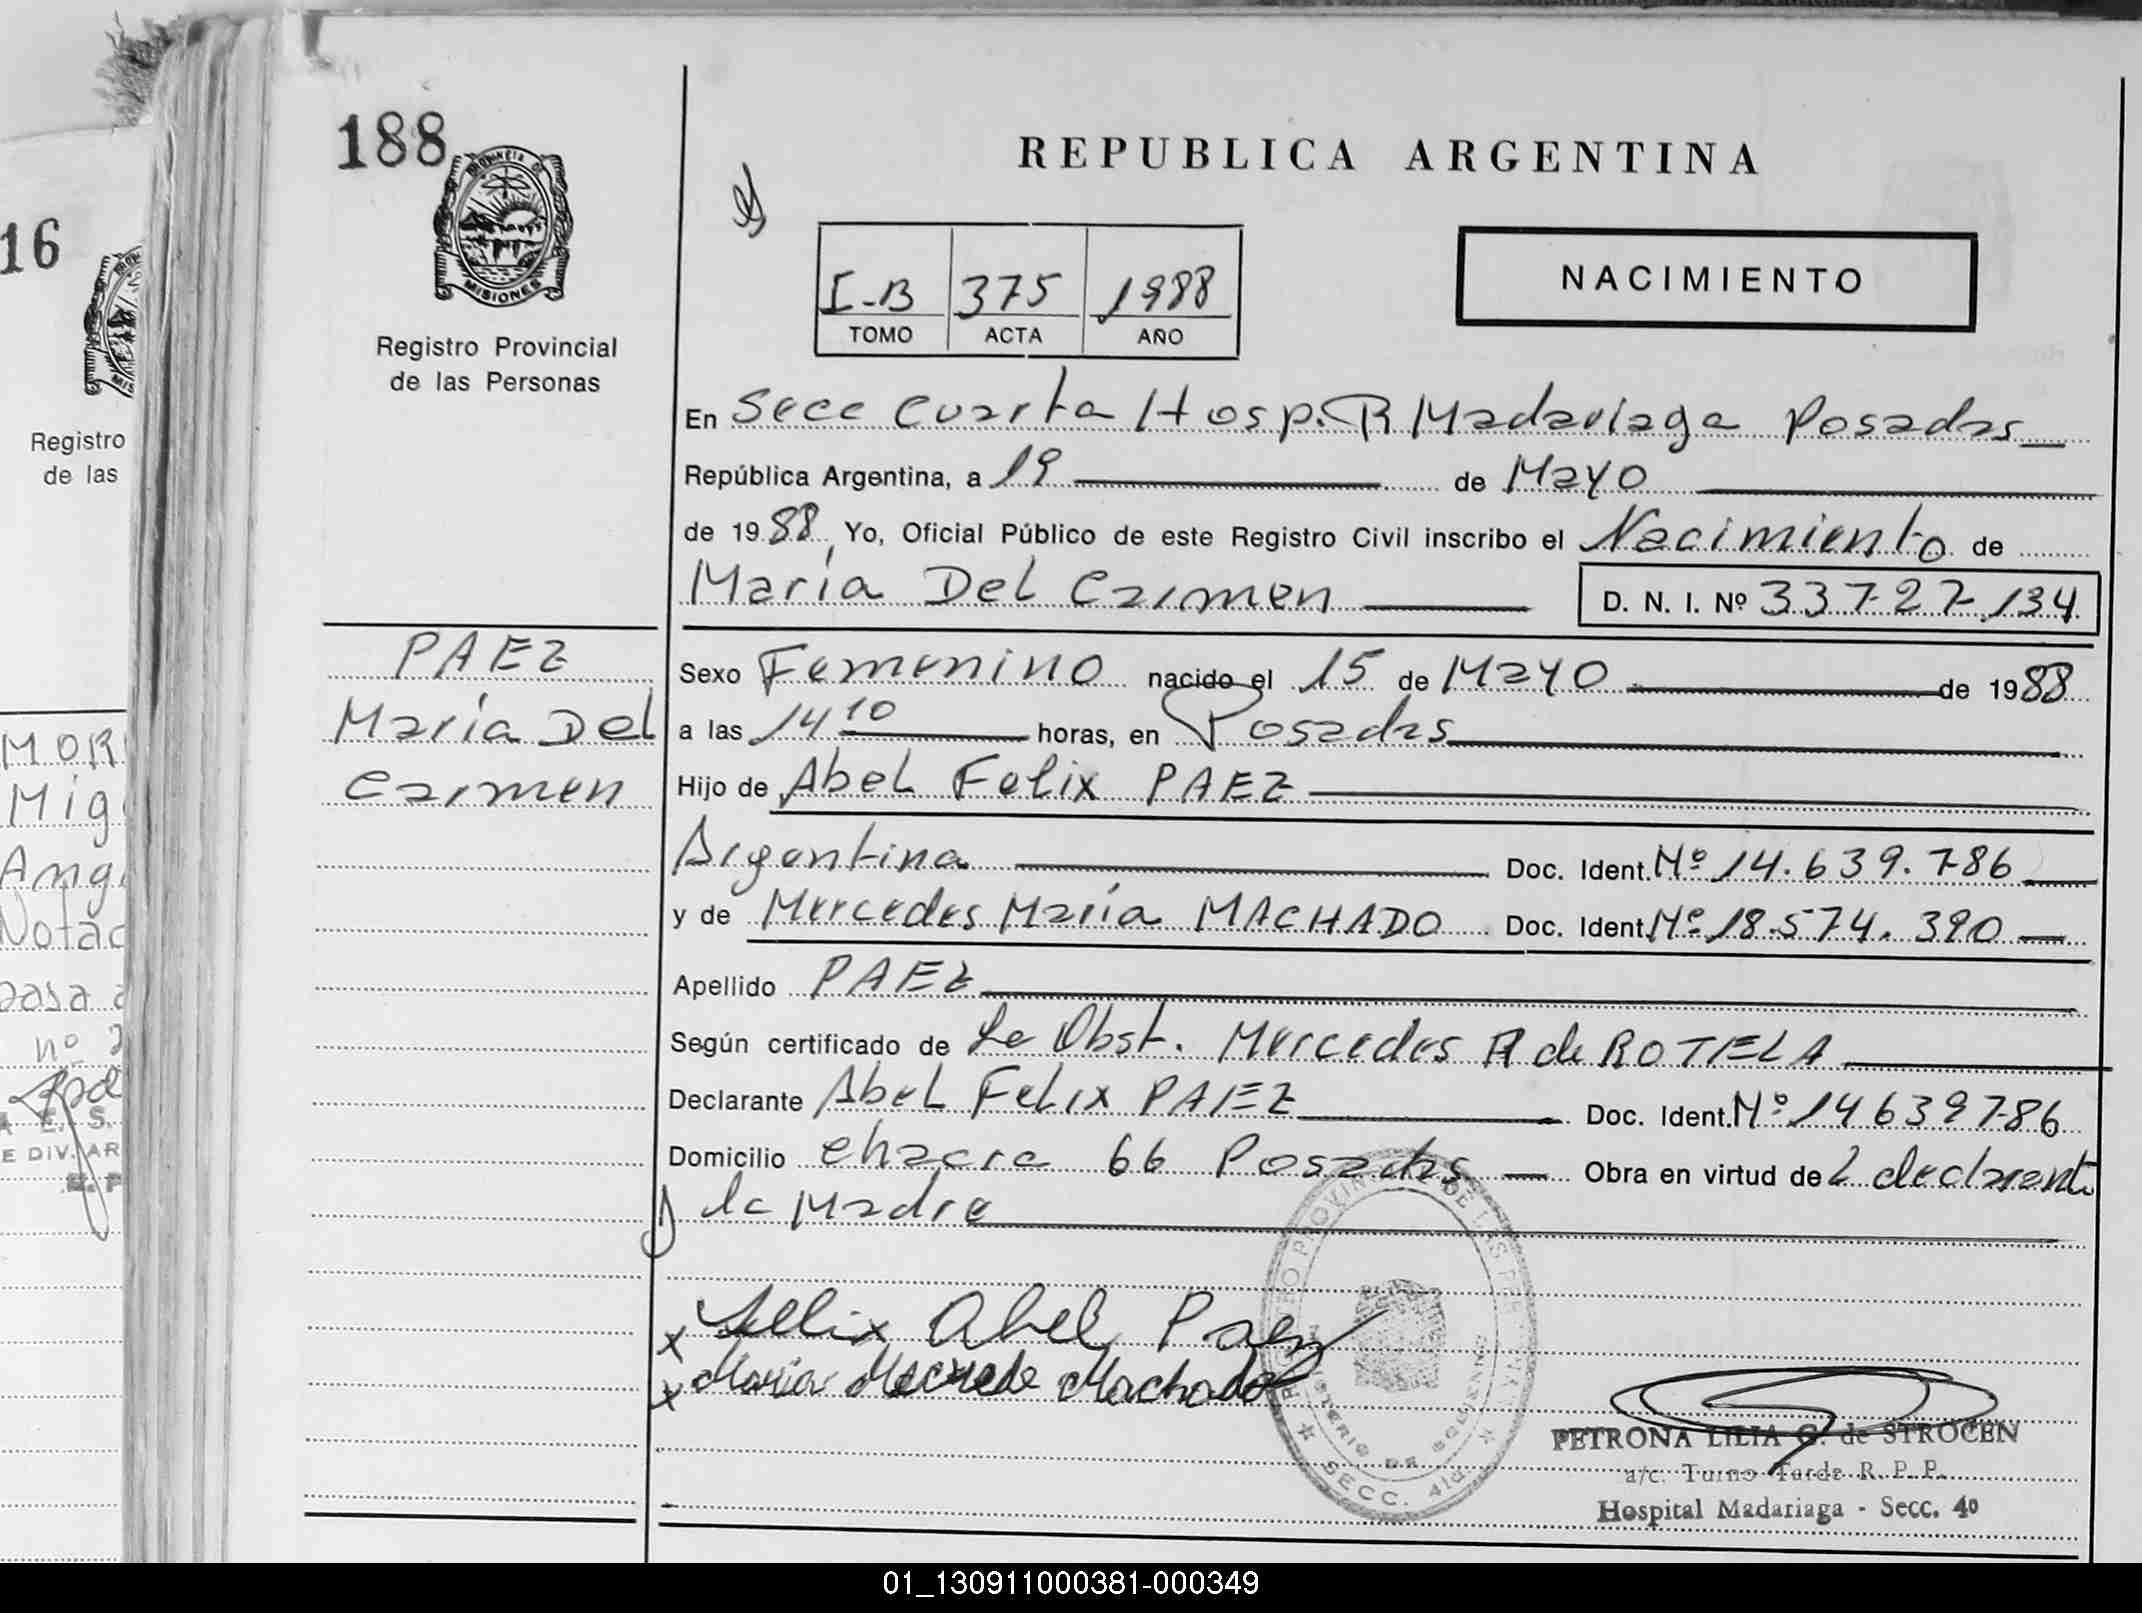 188
PROVINCIA DE
MISIONES
Registro Provincial
de las Personas
REPUBLICA ARGENTINA
NACIMIENTO
I-B 375 1988
TOMO ACTA AÑO
En Secc Cuarta Hosp. R Madariaga Posadas
República Argentina, a 19 de Mayo
de 1988, Yo, Oficial Público de este Registro Civil inscribo el Nacimiento de
María Del Carmen D. N. I. Nº 33727134
PAEZ
María Del
Carmen
Sexo Femenino nacido el 15 de Mayo de 1988
a las 14 10 horas, en Posadas
Hijo de Abel Felix PAEZ
Argentina Doc. Ident. Nº 14.639.786
y de Mercedes María MACHADO Doc. Ident. Nº 18.574.390
Apellido PAEZ
Según certificado de La Obst. Mercedes A de ROTELA
Declarante Abel Felix PAEZ Doc. Ident. Nº 14639786
Domicilio Chacra 66 Posadas Obra en virtud de declarante
y la Madre
x Felix Abel Paez
x Maria Mecrede Machado
REGISTRO PROVINCIAL DE LAS PERSONAS
MINISTERIO DE GOBIERNO
SECC. 4ta.
PETRONA LILIA G. de STROCEN
a/c. Turno Tarde R. P. P.
Hospital Madariaga - Secc. 4º
16
Registro
de las
MOR
Mig
Ang
Notac
pasa a
nº 2
E. S.
E DIV. AR
01_130911000381-000349